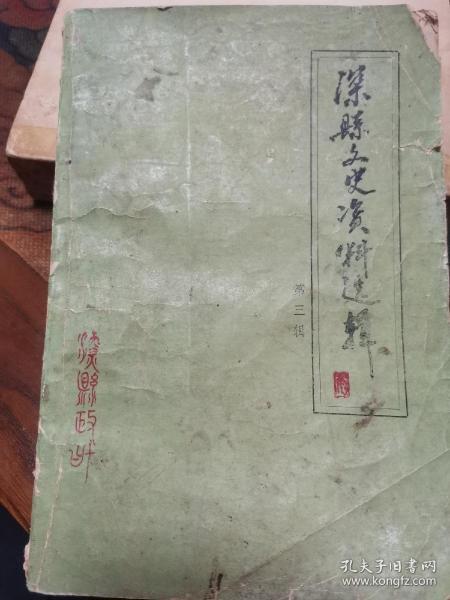 深縣文史资料选辑
第三辑
深縣政协
孔夫子旧书网
www.kongfz.com